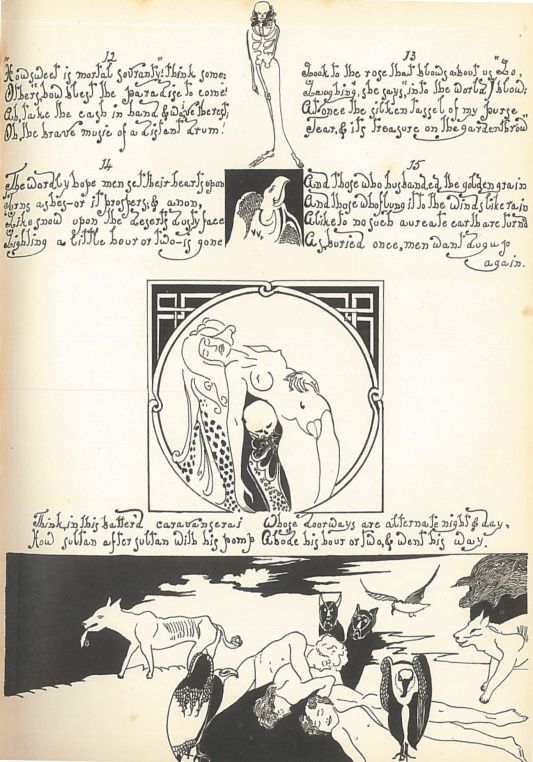 12
"How sweet is mortal sovranty"! think some:
Others "how blest the paradise to come!
Ah, take the cash in hand & waive the rest;
Oh, the brave music of a distant drum!
13
Look to the rose that blows about us "Lo,
Laughing," she says, "into the world I blow:
At once the silken tassel of my purse
Tear, & its treasure on the garden throw"
14
The wordly hope men set their hearts upon
Turns ashes-or it prospers; & anon,
Like snow upon the desert's dusty face
Lighting a little hour or two-is gone
15
And those who husbanded the golden grain
And those who flung it to the winds like rain
Alike to no such aureate earth are turn'd
As, buried once, men want dug up
again.
Think, in this batter'd caravanserai Whose doorways are alternate night & day,
How sultan after sultan with his pomp Abode his hour or two, & went his way.